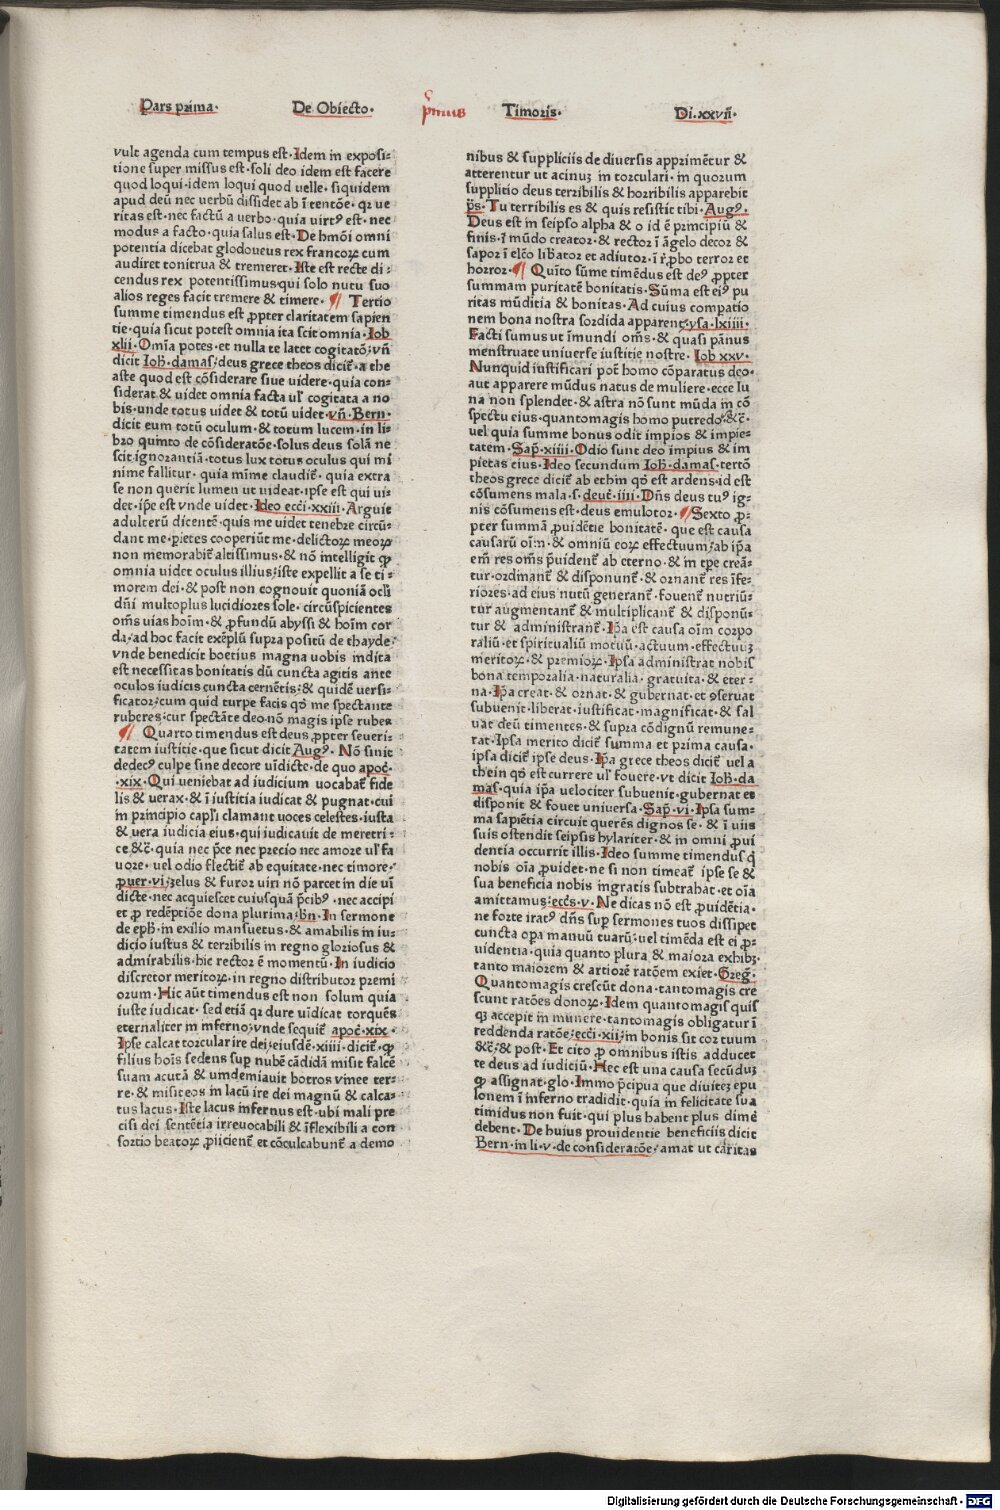 Pars prima· De Obiecto· p̄mus Timoris· Di·xxvii·
vult agenda cum tempus est·Idem in exposi⸗
tione super missus est·soli deo idem est facere
quod loqui·idem loqui quod uelle· siquidem
apud deū nec uerbū dissidet ab ītentōe· qꝛ ue
ritas est·nec factū a uerbo·quia uirtꝰ est· nec
modus a facto·quia salus est·De hmōi omni
potentia dicebat glodoueus rex francoꝝ cum
audiret tonitrua & tremeret·Iste est recte di⸗
cendus rex potentissimus·qui solo nutu suo
alios reges facit tremere & timere· ¶ Tertio
summe timendus est ꝓpter claritatem sapien
tie·quia sicut potest omnia ita scit omnia·Iob
xlii·Omīa potes·et nulla te latet cogitatō;vn̄
dicit Ioh̄·damas̄;deus grece theos dicit̄·a the
aste quod est cōsiderare siue uidere·quia con⸗
siderat & uidet omnia facta ul' cogitata a no
bis·unde totus uidet & totū uidet·vn̄·Bern·
dicit eum totū oculum·& totum lucem·in li⸗
bro quinto de cōsideratōe·solus deus solā ne
scit ignorantiā·totus lux totus oculus qui mi
nime fallitur· quia mīme claudit̄· quia extra
se non querit lumen ut uideat·ipse est qui ui⸗
det·ip̄e est vnde uidet·Ideo ecci·xxiii·Arguit
adulterū dicentē·quis me uidet tenebre circū⸗
dant me·pietes cooperiūt me·delictoꝝ meoꝝ
non memorabit̄ altissimus·& nō intelligit ꝙ
omnia uidet oculus illius;iste expellit a se ti⸗
morem dei·& post non cognouit quoniā ocl̄i
dn̄i multoplus lucidiores sole·circūspicientes
om̄s uias hoīm·& ꝓfundū abyssi & hoīm cor
da·ad hoc facit exēplū supra positū de thayde;
vnde benedicit boetius magna uobis indita
est necessitas bonitatis dū cuncta agitis ante
oculos iudicis cuncta cernētis;& quidē uersi⸗
ficator;cum quid turpe facis qō me spectante
ruberes;cur spectāte deo·nō magis ipse rubes
¶ Quarto timendus est deus ꝓpter seueri⸗
tatem iustitie·que sicut dicit Augꝰ· Nō sinit
dedecꝰ culpe sine decore uīdicte·de quo apoc̄·
·xix·Qui ueniebat ad iudicium uocabat̄ fide
lis & uerax·& ī iustitia iudicat & pugnat·cui
in principio capl'i clamant uoces celestes·iusta
& uera iudicia eius·qui iudicauit de meretri⸗
ce &c̄·quia nec p̄ce nec precio nec amore ul' fa
uore· uel odio flectit̄ ab equitate·nec timore·
ꝓuer·vi·;zelus & furor uiri nō parcet in die uī
dicte·nec acquiescet cuiusquā p̄cibꝰ ·nec accipi
et ꝓ redēptiōe dona plurima;b̄n·In sermone
de eph̄·in exilio mansuetus·& amabilis in iu⸗
dicio iustus & terribilis in regno gloriosus &
admirabilis·hic rector ē momentū·In iudicio
discretor meritoꝝ·in regno distributor premi
orum·Hic aūt timendus est non solum quia
iuste iudicat· sed etiā qꝛ dure uīdicat torquēs
eternaliter in inferno;vnde sequit̄ apoc̄·xix·
Ipse calcat torcular ire dei;eiusdē·xiiii·dicit̄·ꝙ
filius hoīs sedens suꝑ nubē cādidā misit falcē
suam acutā & uindemiauit botros vinee ter⸗
re·& misit eos in lacū ire dei magnū & calca⸗
tus lacus·Iste lacus infernus est·ubi mali pre
cisi dei sentētia irreuocabili & īflexibili a con
sortio beatoꝝ ꝓiicient̄ et cōculcabunt̄ a demo
nibus & suppliciis de diuersis apprimētur &
atterentur ut acinuꝫ in torculari· in quorum
supplitio deus terribilis & horribilis apparebit
p̄s·Tu terribilis es & quis resistit tibi·Augꝰ·
Deus est in seipso alpha & o id ē principiū &
finis·ī mūdo creator·& rector ī āgelo decor &
sapor ī elc̄o lib̄ator et adiutor·ī r̄ꝓbo terror et
horror·¶ Quīto sūme timēdus est deꝰ ꝓpter
summam puritatē bonitatis·Sūma est eiꝰ pu
ritas mūditia & bonitas·Ad cuius compatio
nem bona nostra sordida apparent;ysa·lxiiii·
Facti sumus ut īmundi om̄s·& quasi pānus
menstruate uniuerse iustitie nostre·Iob xxv·
Nunquid iustificari pot̄ homo cōparatus deo·
aut apparere mūdus natus de muliere·ecce lu
na non splendet·& astra nō sunt mūda in cō
spectu eius·quantomagis homo putredo·&c̄·
uel quia summe bonus odit impios & impie⸗
tatem·Sap̄·xiiii·Odio sunt deo impius & im
pietas eius·Ideo secundum Ioh̄·damas̄·tertō
theos grece dicit̄ ab ethin qō est ardens·id est
cōsumens mala·s·deut̄·iiii·Dn̄s deus tuꝰ ig⸗
nis cōsumens est·deus emulotor·¶Sexto ꝓ⸗
pter summā ꝓuidētie bonitatē·que est causa
causarū oīm·& omniū eoꝝ effectuum;ab ip̄a
em̄ res om̄s ꝓuident̄ ab eterno·& in tp̄e creā⸗
tur·ordinant̄ & disponunt̄·& ornant̄ res īfe⸗
riores·ad eius nutū generant̄·fouent̄ nutriū⸗
tur augmentant̄ & multiplicant̄ & disponū⸗
tur & administrant̄·Ip̄a est causa oīm corpo
raliū·et spiritualiū motuū·actuum·effectuuꝫ
meritoꝝ·& premioꝝ·Ipsa administrat nobis
bona temporalia·naturalia· gratuita·& eter⸗
na·Ip̄a creat·& ornat·& gubernat·et ꝯseruat
subuenit·liberat·iustificat·magnificat·& sal
uat deū timentes·& supra cōdignū remune⸗
rat·Ipsa merito dicit̄ summa et prima causa·
ipsa dicit̄ ipse deus·Ip̄a grece theos dicit̄ uel a
thein qō est currere ul' fouere·vt dicit Ioh̄·da
mas̄·quia ip̄a uelociter subuenit·gubernat et
disponit & fouet uniuersa·Sap̄·vi·Ipsa sum⸗
ma sapiētia circuit querēs dignos se·& ī uiis
suis ostendit seipsis hylariter·& in omni ꝓui
dentia occurrit illis·Ideo summe timendus q̄
nobis oīa ꝓuidet·ne si non timeat̄ ipse se &
sua beneficia nobis ingratis subtrahat·et oīa
amittamus;ecc̄s·v·Ne dicas nō est ꝓuidētia·
ne forte iratꝰ dn̄s suꝑ sermones tuos dissipet
cuncta oꝑa manuū tuarū;uel timēda est ei ꝓ⸗
uidentia·quia quanto plura & maiora exhibꝫ·
tanto maiorem & artiorē ratōem exiet·Greḡ·
Quantomagis crescūt dona·tantomagis cre
scunt ratōes donoꝝ·Idem quantomagis quis
qꝫ accepit in munere·tantomagis obligatur ī
reddenda ratōe;ecci·xii;in bonis sit cor tuum
&c̄·& post·Et cito ꝓ omnibus istis adducet
te deus ad iudiciū·Hec est una causa secūduꝫ
ꝙ assignat·glo·Immo p̄cipua que diuiteꝫ epu
lonem ī inferno tradidit·quia in felicitate sua
timidus non fuit·qui plus habent plus dime
debent·De huius prouidentie beneficiis dicit
Bern·in li·v·de consideratōe;amat ut caritas
Digitalisierung gefördert durch die Deutsche Forschungsgemeinschaft · DFG